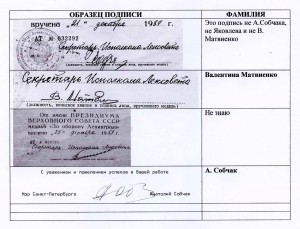 ОБРАЗЕЦ ПОДПИСИ
ФАМИЛИЯ
вручено "21" декабря 1981 г.
АТ № 632292
Секретарь Исполкома
Это подпись не А.Собчака,
не Яковлева и не В.
Матвиенко
Секретарь Исполкома
В. Матв
(должность, воинское звание и подпись лица, вручившего медаль)
Валентина Матвиенко
От имени ПРЕЗИДИУМА
ВЕРХОВНОГО СОВЕТА СССР
медаль «За оборону Ленинграда»
вручена
Секретарь Исполкома
Не знаю
С уважением и пожеланием успехов в Вашей работе
Мэр Санкт-Петербурга
Анатолий Собчак
А. Собчак